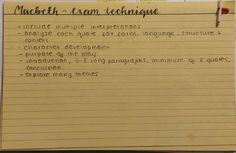 Macbeth - Exam technique
- include multiple interpretations
- analyse each quote for form, language, structure &
context
- character development
- purpose of the play
- introduction, 3-5 long paragraphs, minimum of 2 quotes,
conclusion
- explore many themes